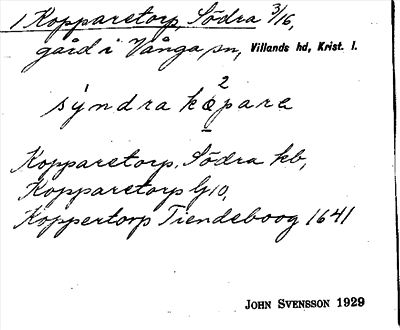 1 Kopparetorp Södra 3/16,
gård i Vånga sn, Villands hd, Krist. l.
2
sýndra kǫpare
Kopparetorp, Södra kb,
Kopparetorp G10,
Koppertorp Tiendeboog 1641
JOHN SVENSSON 1929